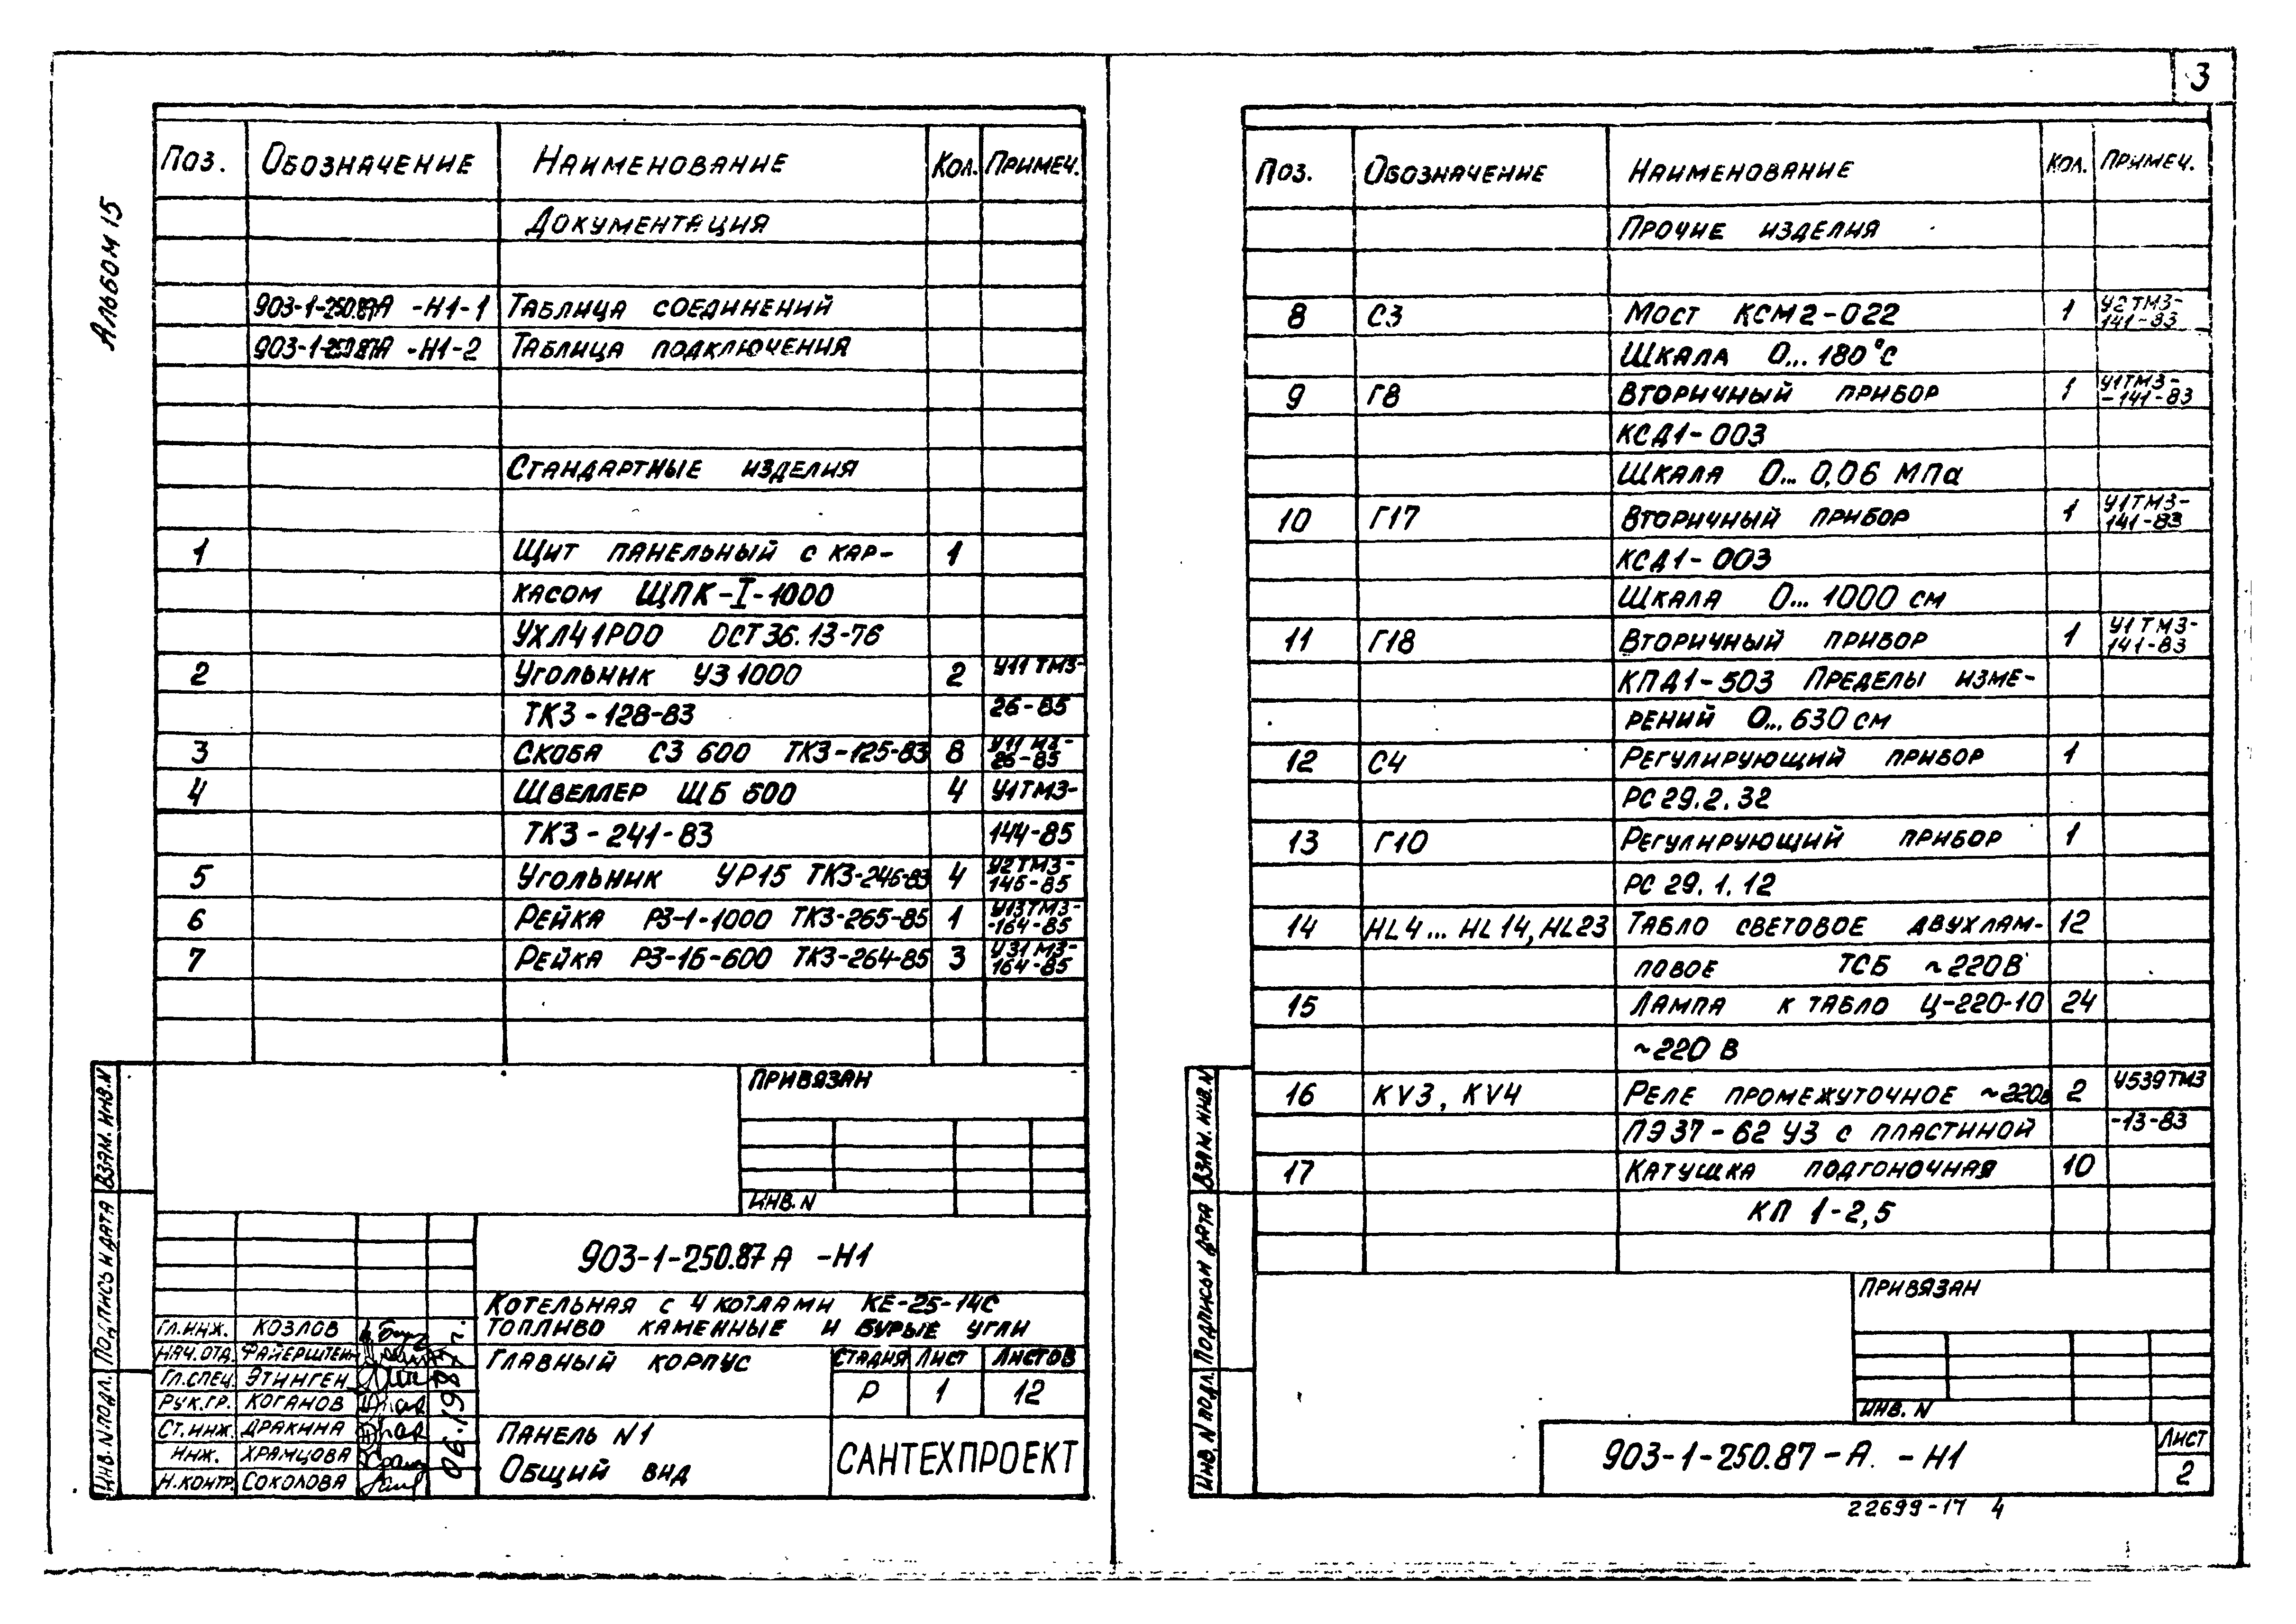 3
Альбом 15
Поз. Обозначение Наименование Кол. Примеч.
Документация
903-1-250.87А -Н1-1 Таблица соединений
903-1-250.87А -Н1-2 Таблица подключения
Стандартные изделия
1 Щит панельный с кар- 1
касом ЩПК-I-1000
УХЛ41Р00 ОСТ36.13-76
2 Угольник УЗ 1000 2 У11 ТМ3-
ТК3-128-83 26-85
3 Скоба СЗ 600 ТК3-125-83 8
26-85
4 Швеллер ШБ 600 4 У1ТМ3-
ТК3-241-83 144-85
5 Угольник УР15 ТК3-246-83 4 У2ТМ3-
146-85
6 Рейка РЗ-1-1000 ТК3-265-85 1 У13ТМ3-
-164-85
7 Рейка РЗ-1Б-600 ТК3-264-85 3
164-85
Привязан
Инв. N
903-1-250.87 А -Н1
Котельная с 4 котлами КЕ-25-14С
топливо каменные и бурые угли
Гл.инж. Козлов
Нач.отд. Файерштейн
Гл.спец. Этинген
Рук.гр. Коганов
Ст.инж. Дракина
Инж. Храмцова
Н.контр. Соколова
06.1987г.
Главный корпус
Стадия Лист Листов
Р 1 12
Панель N1
Общий вид
САНТЕХПРОЕКТ
Инв. N подл. Подпись и дата Взам. инв. N
Поз. Обозначение Наименование Кол. Примеч.
Прочие изделия
8 С3 Мост КСМ2-022 1 У2ТМ3-
141-83
Шкала 0...180°С
9 Г8 Вторичный прибор 1 У1ТМ3-
-141-83
КСД1-003
Шкала 0...0,06 МПа
10 Г17 Вторичный прибор 1 У1ТМ3-
141-83
КСД1-003
Шкала 0...1000 см
11 Г18 Вторичный прибор 1 У1ТМ3-
141-83
КПД1-503 Пределы изме-
рений 0...630 см
12 С4 Регулирующий прибор 1
РС 29.2.32
13 Г10 Регулирующий прибор 1
РС 29.1.12
14 HL4...HL14, HL23 Табло световое двухлам- 12
повое ТСБ ~220В
15 Лампа к табло Ц-220-10 24
~220 В
16 KV3, KV4 Реле промежуточное ~220В 2 У539ТМ3
ПЭ37-62 УЗ с пластиной -13-83
17 Катушка подгоночная 10
КП 1-2,5
Привязан
Инв. N
903-1-250.87-А. -Н1
Лист
2
Инв. N подл. Подпись и дата Взам. инв. N
22699-17 4